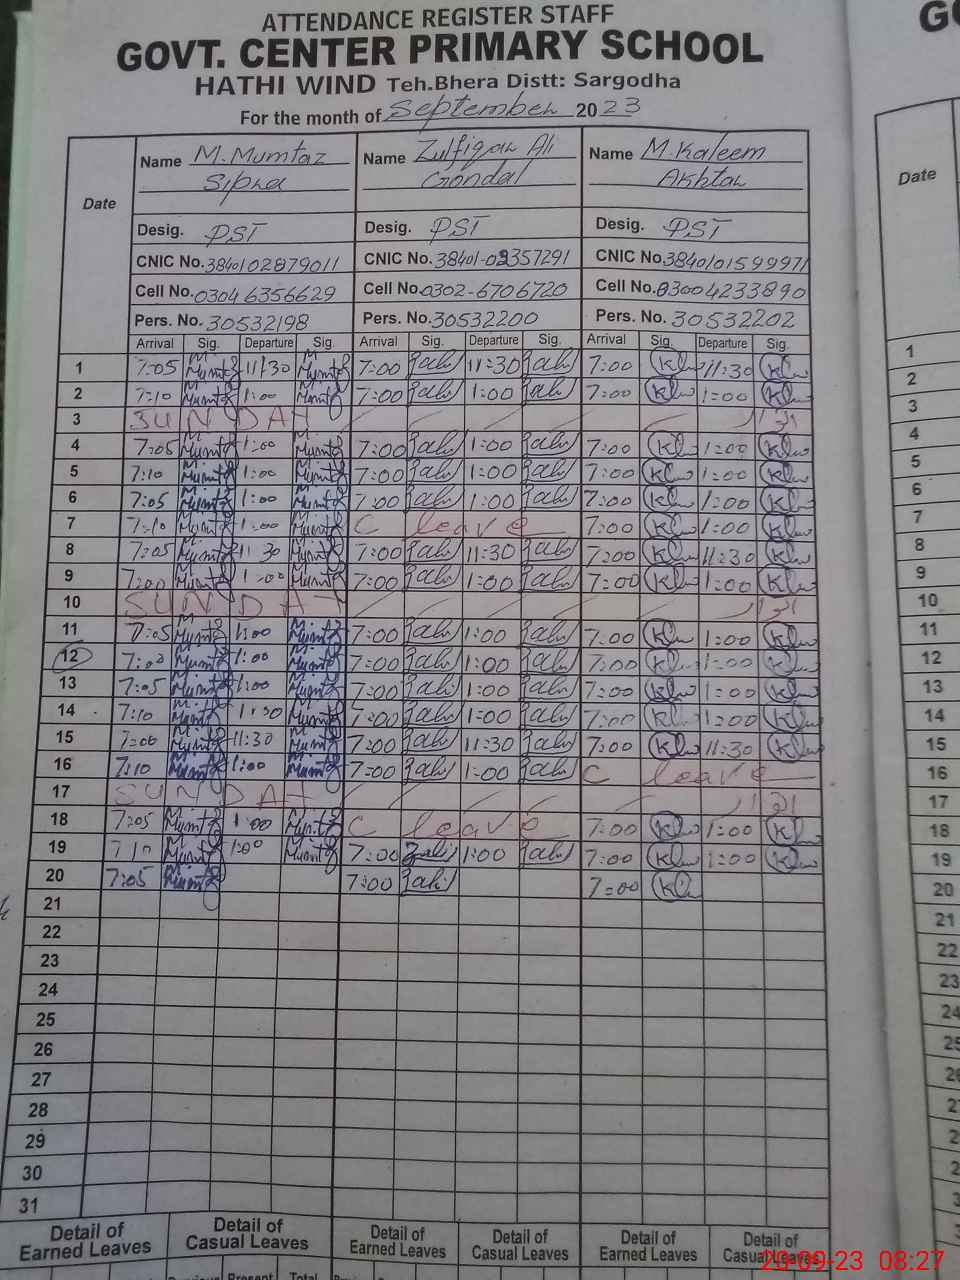 ATTENDANCE REGISTER STAFF
GOVT. CENTER PRIMARY SCHOOL
HATHI WIND Teh.Bhera Distt: Sargodha
For the month of September 2023
Date Name M. Mumtaz Sipra Name Zulfiqar Ali Gondal Name M. Kaleem Akhtar Date
Desig. PST Desig. PST Desig. PST
CNIC No. 3840102879011 CNIC No. 38401-02357291 CNIC No. 3840101599971
Cell No. 03046356629 Cell No. 0302-6706720 Cell No. 03004233890
Pers. No. 30532198 Pers. No. 30532200 Pers. No. 30532202
Arrival Sig. Departure Sig. Arrival Sig. Departure Sig. Arrival Sig. Departure Sig.
1 7:05 M. Mumtaz 11:30 M. Mumtaz 7:00 11:30 7:00 11:30 1
2 7:10 M. Mumtaz 1:00 M. Mumtaz 7:00 1:00 7:00 1:00 2
3 SUNDAY اتوار 3
4 7:05 M. Mumtaz 1:00 M. Mumtaz 7:00 1:00 7:00 1:00 4
5 7:10 M. Mumtaz 1:00 M. Mumtaz 7:00 1:00 7:00 1:00 5
6 7:05 M. Mumtaz 1:00 M. Mumtaz 7:00 1:00 7:00 1:00 6
7 7:10 M. Mumtaz 1:00 M. Mumtaz C leave 7:00 1:00 7
8 7:05 M. Mumtaz 11:30 M. Mumtaz 7:00 11:30 7:00 11:30 8
9 7:00 M. Mumtaz 1:00 M. Mumtaz 7:00 1:00 7:00 1:00 9
10 SUNDAY اتوار 10
11 7:05 M. Mumtaz 1:00 M. Mumtaz 7:00 1:00 7:00 1:00 11
12 7:00 M. Mumtaz 1:00 M. Mumtaz 7:00 1:00 7:00 1:00 12
13 7:05 M. Mumtaz 1:00 M. Mumtaz 7:00 1:00 7:00 1:00 13
14 7:10 M. Mumtaz M. Mumtaz 7:00 1:00 7:00 1:00 14
15 7:00 M. Mumtaz 11:30 M. Mumtaz 7:00 11:30 7:00 11:30 15
16 7:10 M. Mumtaz 1:00 M. Mumtaz 7:00 1:00 C leave 16
17 SUNDAY اتوار 17
18 7:05 M. Mumtaz 1:00 M. Mumtaz C leave 7:00 1:00 18
19 7:10 M. Mumtaz 1:00 M. Mumtaz 7:00 1:00 7:00 1:00 19
20 7:05 M. Mumtaz 7:00 7:00 20
21 21
22 22
23 23
24 24
25 25
26 26
27
28
29
30
31
Detail of Earned Leaves Detail of Casual Leaves Detail of Earned Leaves Detail of Casual Leaves Detail of Earned Leaves Detail of Casual Leaves
Previous Present Total
20-09-23 08:27